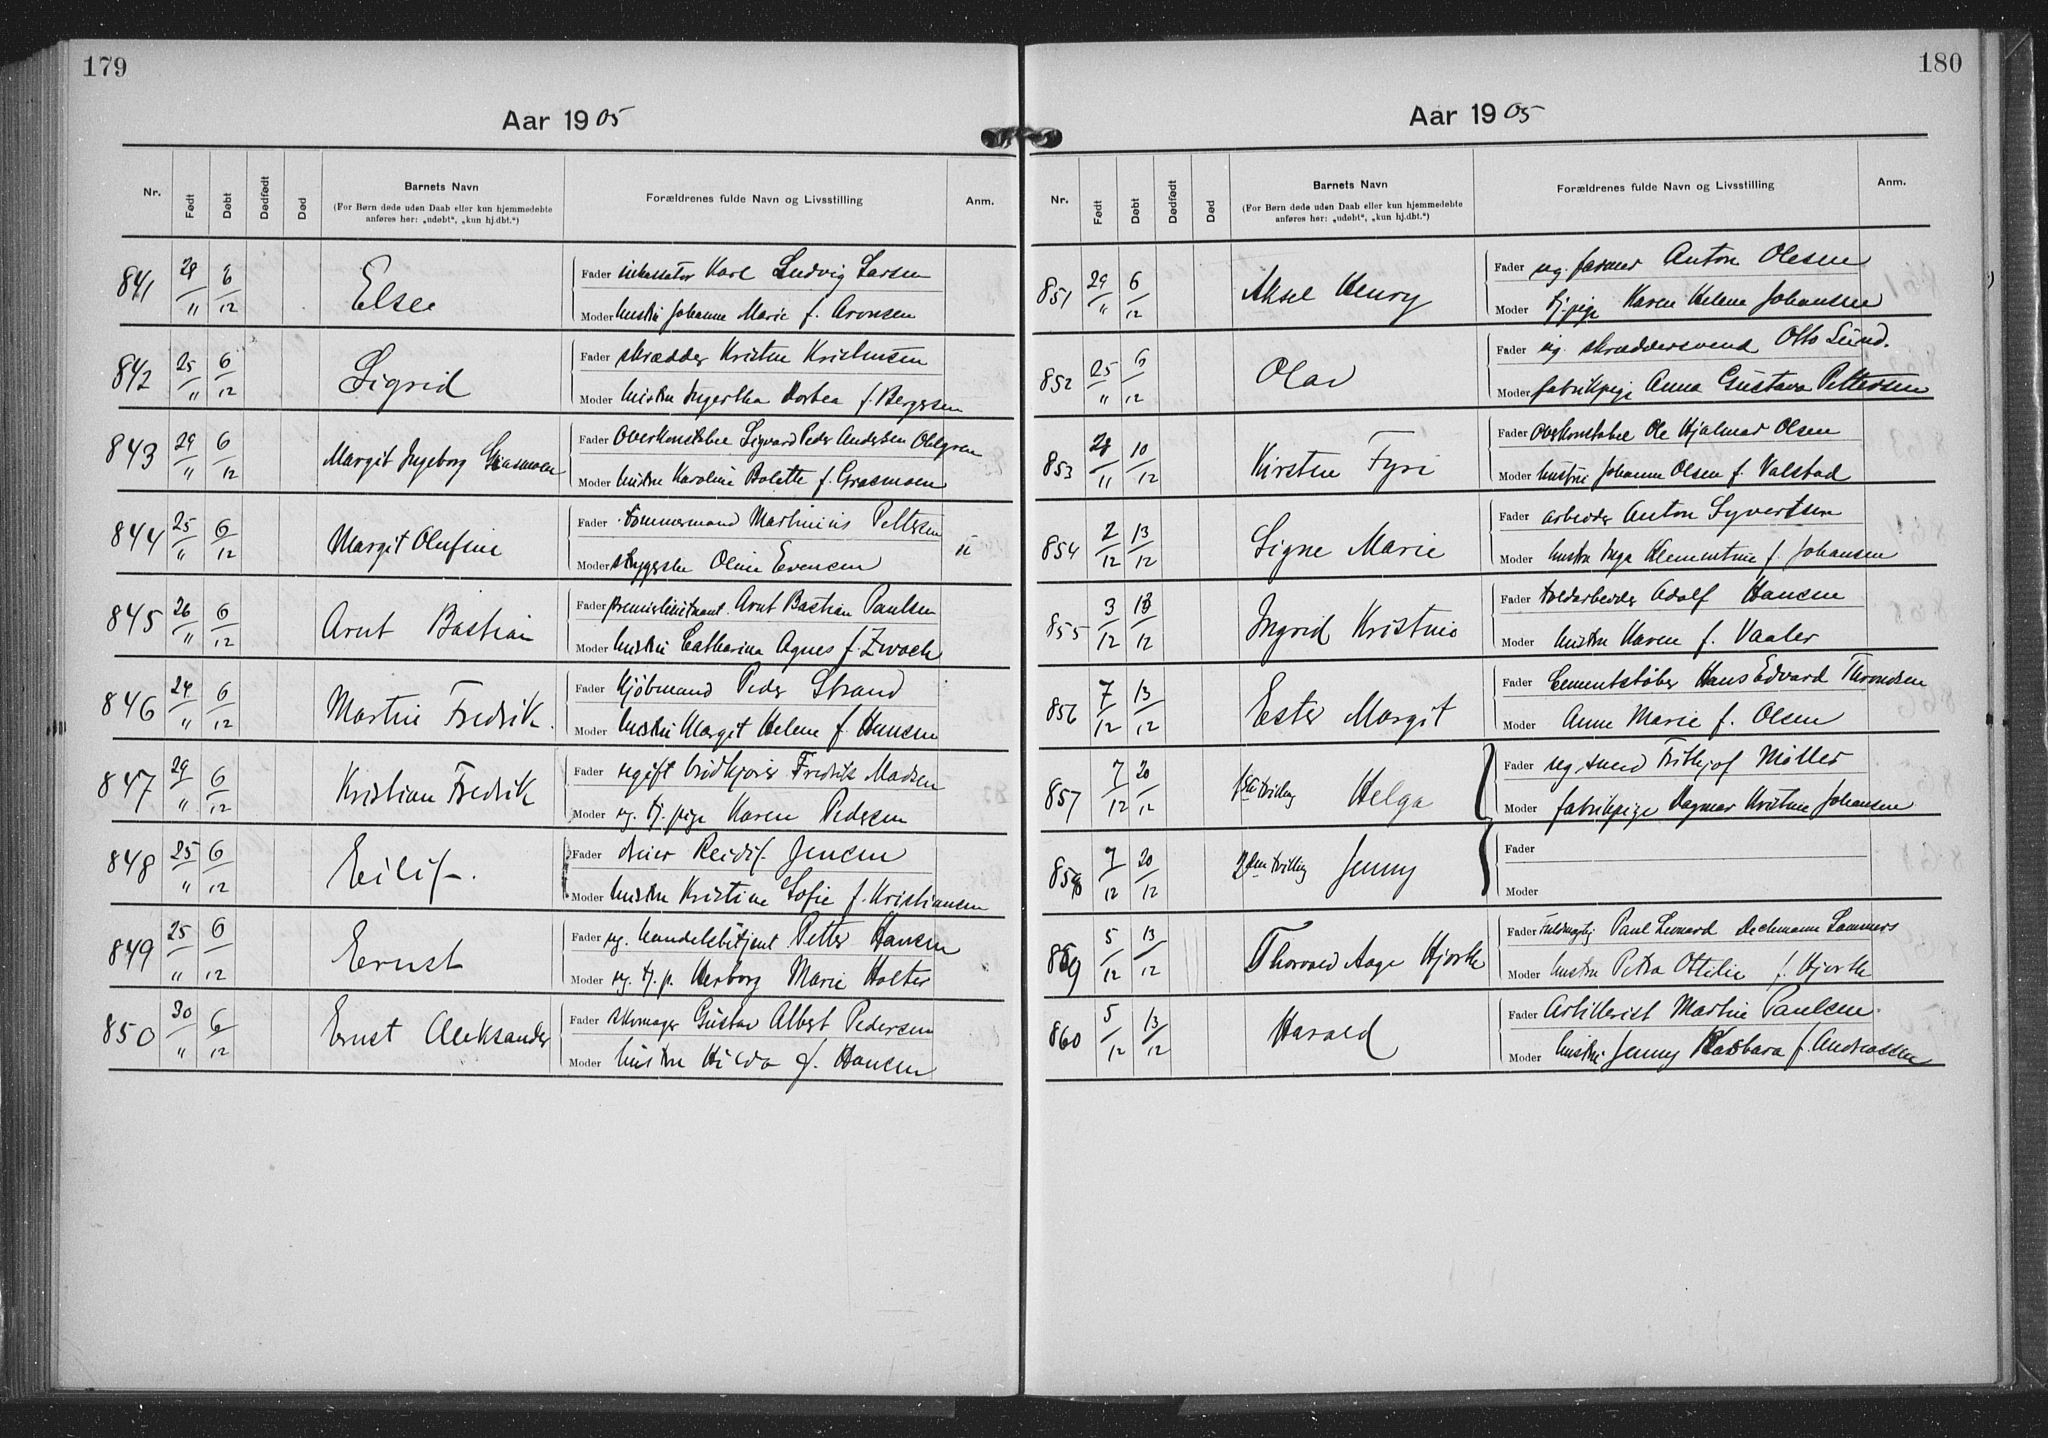 179
Aar 1905
Nr. Født Døbt Dødfødt Død Barnets Navn Forældrenes fulde Navn og Livsstilling Anm.
(For Børn døde uden Daab eller kun hjemmedøbte
anføres her: „udøbt“, „kun hj.dbt.“)
841 28/11 6/12 Else Fader inkassator Karl Ludvig Larsen
Moder hustru Johanne Marie f. Aronsen
842 25/11 6/12 Sigrid Fader skrædder Kristen Kristensen
Moder hustru Ingertha Dortea f. Bergersen
843 29/11 6/12 Margit Ingeborg Fader Overkonstabel Sigvard Peder Andersen Ohlgren
Moder hustru Karoline Bolette f. Grasmoen
844 25/11 6/12 Margit Olufine Fader tømmermand Martinius Pettersen
Moder Oline Evensen
845 26/11 6/12 Arnt Bastian Fader premierlieutnant Arnt Bastian Paulsen
Moder hustru Catharina Agnes f. Zwack
846 24/11 6/12 Martin Fredrik. Fader Kjöbmand Peder Strand
Moder hustru Margit Helene f. Hansen
847 29/11 6/12 Kristian Fredrik Fader ugift Fredrik Madsen
Moder ug. tj. pige Karen Pedersen
848 25/11 6/12 Eilif. Fader dreier Reidif. Jensen
Moder hustru Kristine Sofie f. Kristiansen
849 25/11 6/12 Ernst Fader ug. handelsbetjent Petter Hansen
Moder ug. tj. p. Herborg Marie Holter
850 30/11 6/12 Ernst Aleksander Fader skomager Gustav Albert Pedersen
Moder hustru Hilda f. Hansen
180
Aar 1905
Nr. Født Døbt Dødfødt Død Barnets Navn Forældrenes fulde Navn og Livsstilling Anm.
(For Børn døde uden Daab eller kun hjemmedøbte
anføres her: „udøbt“, „kun hj.dbt.“)
851 29/11 6/12 Aksel Henry Fader ug. farmer Anton Olesen
Moder tj. pige Karen Helene Johansen
852 25/11 6/12 Olav Fader ug. skræddersvend Otto Lund.
Moder fabrikpige Anna Gustava Pettersen
853 28/11 10/12 Kirsten Fyri Fader Overkonstabel Ole Hjalmar Olsen
Moder hustru Johanne Olsen f. Valstad
854 2/12 13/12 Signe Marie Fader arbeider Anton Syvertsen
Moder hustru Inga Klementine f. Johansen
855 3/12 13/12 Ingrid Kristine Fader toldarbeider Adolf Hansen
Moder hustru Karen f. Vaaler
856 7/12 13/12 Ester Margit Fader Cementstøber Hans Edvard Throndsen
Moder Anne Marie f. Olsen
857 7/12 20/12 1ste tvilling Helga Fader ug. smed Frithjof Møller
Moder fabrikpige Dagmar Kristine Johansen
858 7/12 20/12 2den tvilling Jenny Fader
Moder
859 5/12 13/12 Thorvald Aage Hjorth Fader fuldmægtig Paul Leonard Dechmann Sommers
Moder hustru Petra Ottilie f. Hjorth
860 5/12 13/12 Harald Fader Artillerist Martin Paulsen.
Moder hustru Jenny Barbara f. Andreassen